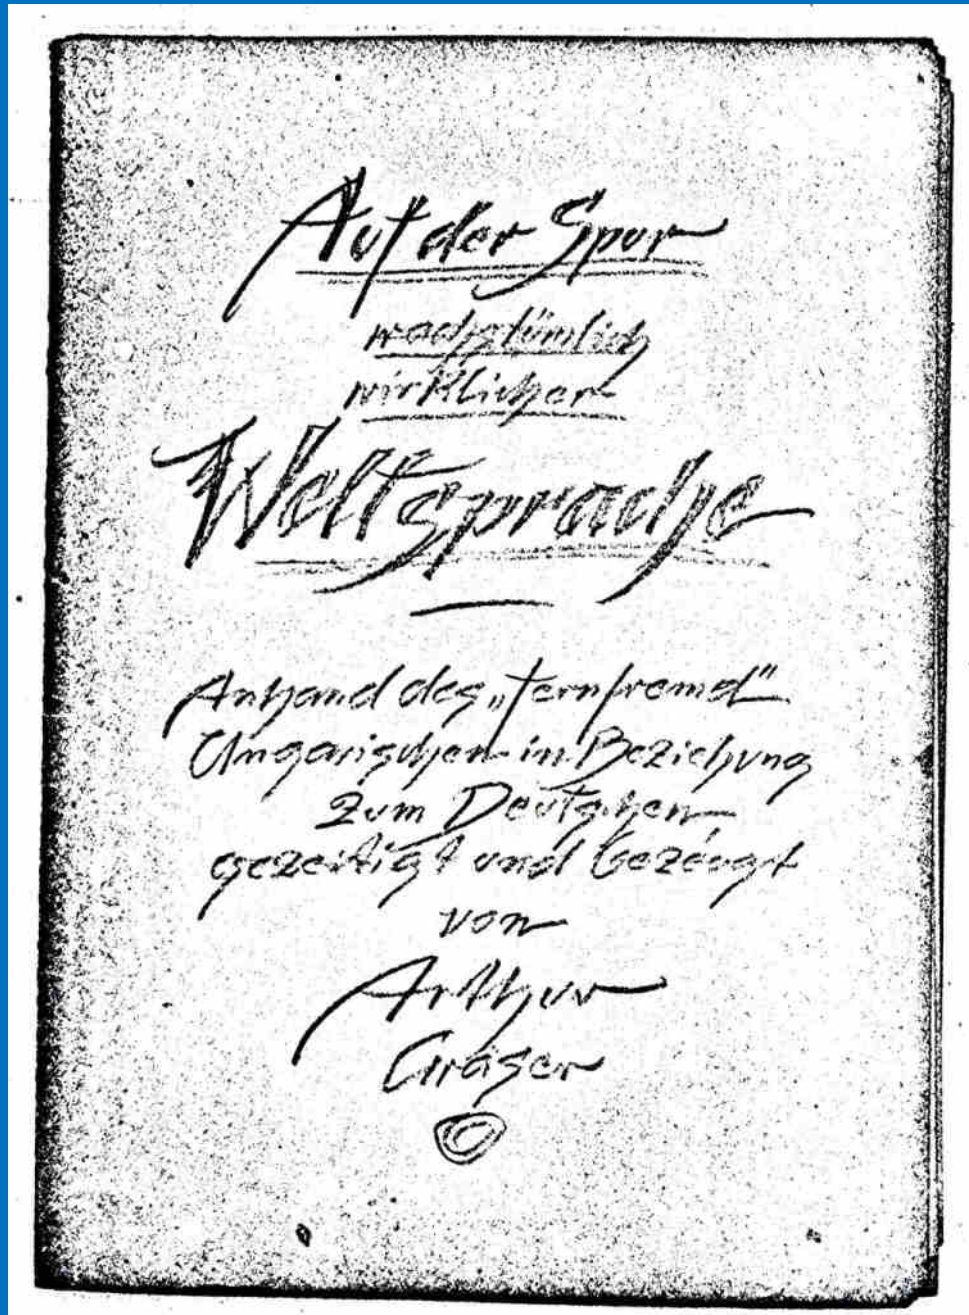 Auf der Spur
wachstümlich
wirklicher
Weltsprache
Anhand des „fernfremd“
Ungarischen in Beziehung
zum Deutschen,
gezeitigt und bezeugt
von
Arthur
Gräser